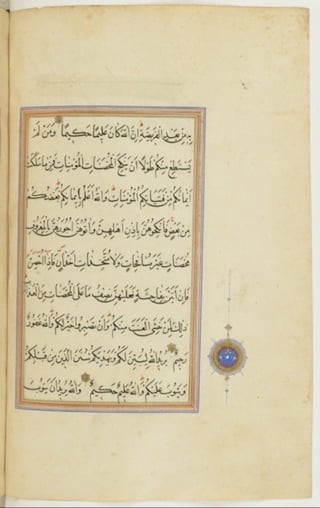 بِهِ مِنْ بَعْدِ الْفَرِيضَةِ إِنَّ اللَّهَ كَانَ عَلِيمًا حَكِيمًا وَمَنْ لَمْ
يَسْتَطِعْ مِنْكُمْ طَوْلًا أَنْ يَنْكِحَ الْمُحْصَنَاتِ الْمُؤْمِنَاتِ فَمِنْ مَا مَلَكَتْ
أَيْمَانُكُمْ مِنْ فَتَيَاتِكُمُ الْمُؤْمِنَاتِ وَاللَّهُ أَعْلَمُ بِإِيمَانِكُمْ بَعْضُكُمْ
مِنْ بَعْضٍ فَانْكِحُوهُنَّ بِإِذْنِ أَهْلِهِنَّ وَآتُوهُنَّ أُجُورَهُنَّ بِالْمَعْرُوفِ
مُحْصَنَاتٍ غَيْرَ مُسَافِحَاتٍ وَلَا مُتَّخِذَاتِ أَخْدَانٍ فَإِذَا أُحْصِنَّ
فَإِنْ أَتَيْنَ بِفَاحِشَةٍ فَعَلَيْهِنَّ نِصْفُ مَا عَلَى الْمُحْصَنَاتِ مِنَ الْعَذَابِ
ذَلِكَ لِمَنْ خَشِيَ الْعَنَتَ مِنْكُمْ وَأَنْ تَصْبِرُوا خَيْرٌ لَكُمْ وَاللَّهُ غَفُورٌ
رَحِيمٌ يُرِيدُ اللَّهُ لِيُبَيِّنَ لَكُمْ وَيَهْدِيَكُمْ سُنَنَ الَّذِينَ مِنْ قَبْلِكُمْ
وَيَتُوبَ عَلَيْكُمْ وَاللَّهُ عَلِيمٌ حَكِيمٌ وَاللَّهُ يُرِيدُ أَنْ يَتُوبَ